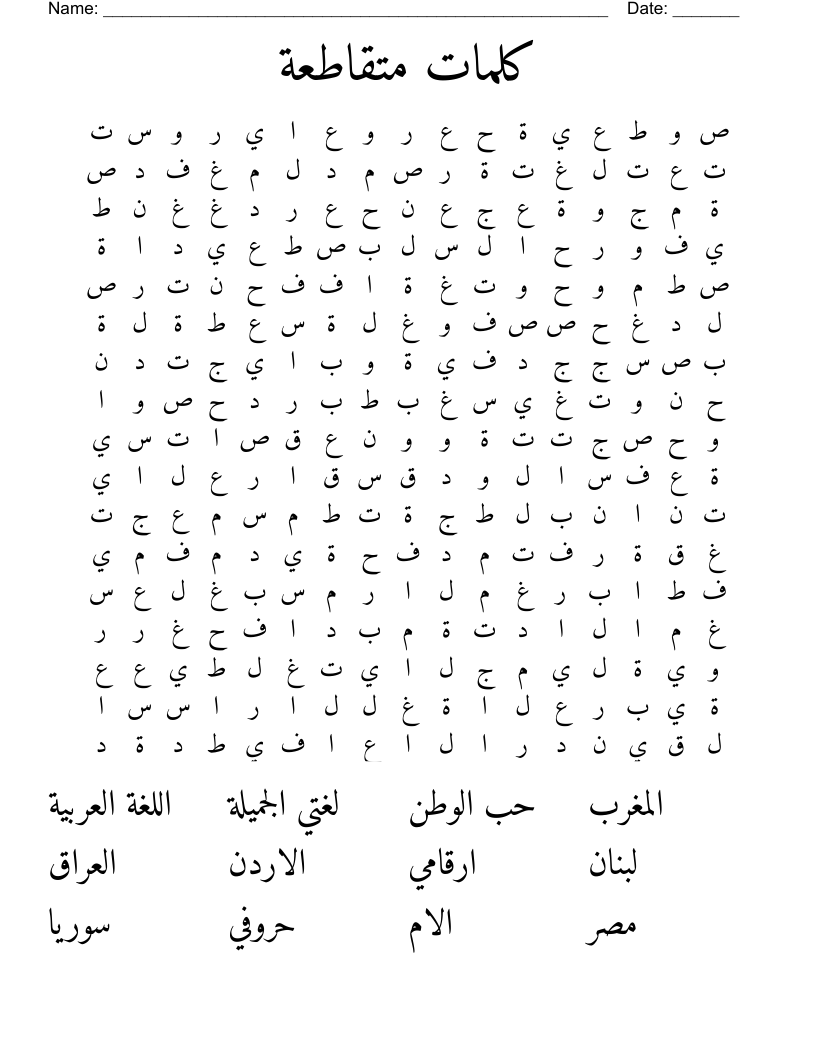 Name: ______________________________________________________ Date: _______
كلمات متقاطعة
ص و ط ع ي ة ح ع ر و ع ا ي ر و س ت
ت ع ت ل غ ت ة ر ص م د ل م غ ف د ص
ة م ج و ة ع ج ع ن ح ع ر د غ غ ن ط
ي ف و ر ح ا ل س ل ب ص ط ع ي د ا ة
ص ط م و ح و ت غ ة ا ف ف ح ن ت ر ص
ل د غ ح ص ص ف و غ ل ة س ع ط ة ل ة
ب ص س ج ج د ف ي ة و ب ا ي ج ت د ن
ح ن و ت غ ي س غ ب ط ب ر د ح ص و ا
و ح ص ج ت ت ة و و ن ع ق ص ا ت س ي
ة ع ف س ا ل و د ق س ق ا ر ع ل ا ي
ت ن ا ن ب ل ط ج ة ت ط م س م ع ج ت
غ ق ة ر ف ت م د ف ح ة ي د م ف م ي
ف ط ا ب ر غ م ل ا ر م س ب غ ل ع س
غ م ا ل ا د ت ة م ب د ا ف ح غ ر ر
و ي ة ل ي م ج ل ا ي ت غ ل ط ي ع ع
ة ي ب ر ع ل ا ة غ ل ل ا ر ا س س ا
ل ق ي ن د ر ا ل ا ع ا ف ي ط د ة د
المغرب حب الوطن لغتي الجميلة اللغة العربية
لبنان ارقامي الاردن العراق
مصر الام حروفي سوريا